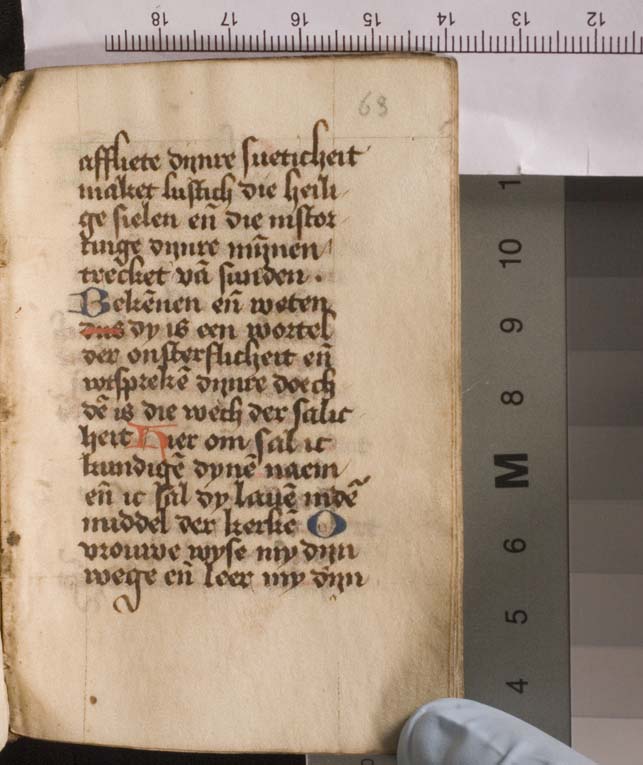 68
affliete dynre sueticheit
maket lustich die heili
ge sielen eñ die instor
tinge dynre mynen
trecket vā sunden .
Bekēnen eñ weten
dus dy is een wortel
der onsterflicheit eñ
wtsprekē dynre doech
dē is die wech der salic
heit Hier om sal ic
kundigē dynē naem
eñ ic sal dy lauē indē
middel der kerkē O
vrouwe wyse my dyn
wege eñ leer my dyn
18 17 16 15 14 13 12
10
9
8
M
6
5
4